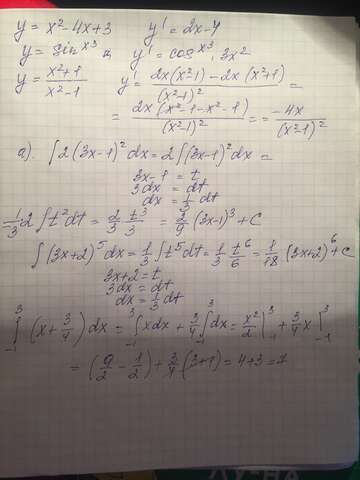 y = x² - 4x + 3 y' = 2x - 4
y = sin x³ y' = cos x³ · 3x²
y = (x² + 1)/(x² - 1) y' = (2x(x² - 1) - 2x(x² + 1))/(x² - 1)² =
= (2x(x² - 1 - x² - 1))/(x² - 1)² = = (-4x)/(x² - 1)²
a). ∫2(3x - 1)² dx = 2∫(3x - 1)² dx =
3x - 1 = t
3dx = dt
dx = 1/3 dt
= 1/3 · 2∫t² dt = 2/3 t³/3 = 2/9 (3x - 1)³ + C
∫(3x + 2)⁵ dx = 1/3 ∫t⁵ dt = 1/3 t⁶/6 = 1/18 (3x + 2)⁶ + C
3x + 2 = t
3dx = dt
dx = 1/3 dt
∫₋₁³ (x + 3/4) dx = ∫₋₁³ x dx + 3/4 ∫₋₁³ dx = x²/2 |₋₁³ + 3/4 x |₋₁³
= (9/2 - 1/2) + 3/4 (3 + 1) = 4 + 3 = 7